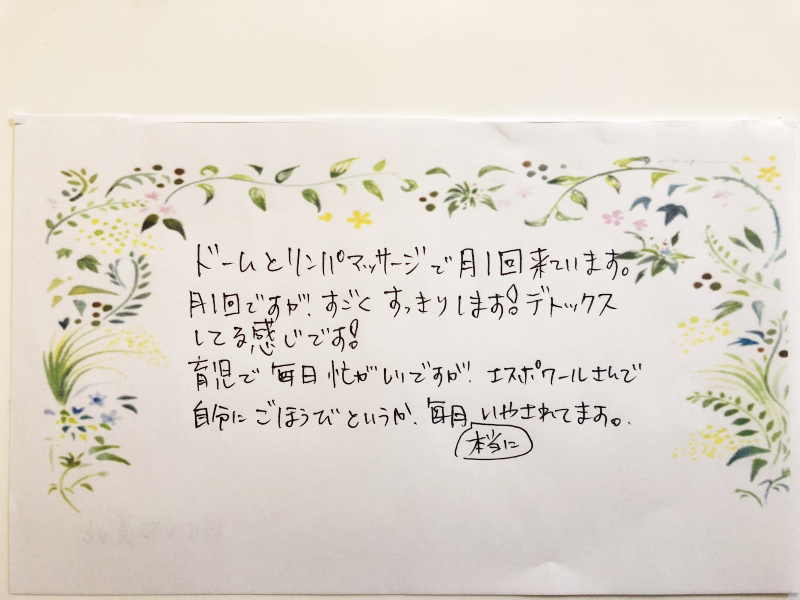 ドームとリンパマッサージで月1回来ています。
月1回ですが、すごくすっきりします!デトックス
してる感じです!
育児で毎日忙がしいですが、エスポワールさんで
自分にごほうびというか、毎月、いやされてます。
本当に